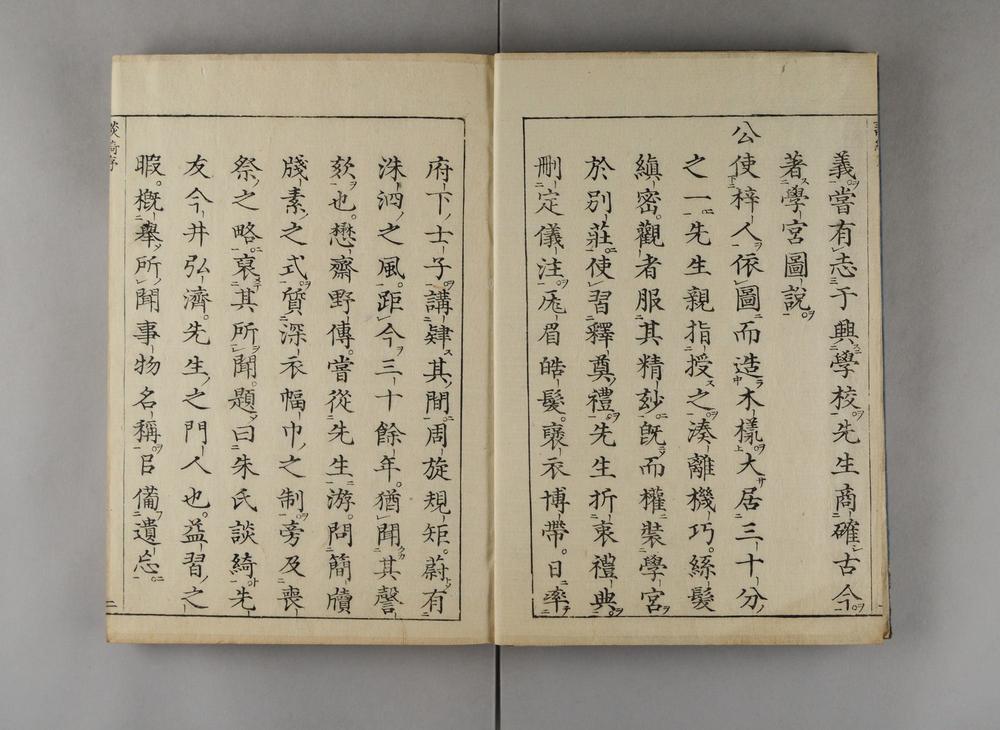 義嘗有志于興學校先生商確古今
著學宮圖說
公使梓人依圖而造木樣大居三十分
之一先生親指授之湊離機巧絲髮
縝密觀者服其精玅既而權裝學宮
於別莊使習釋奠禮先生折衷禮典
刪定儀注厖眉皓髮襃衣博帶日率
府下士子講肄其間周旋規矩蔚有
洙泗之風距今三十餘年猶聞其謦
欬也懋齋野傳嘗從先生游問簡牘
牋素之式質深衣幅巾之制旁及喪
祭之略裒其所聞題曰朱氏談綺先
友今井弘濟先生之門人也益習之
暇概舉所聞事物名稱㠯備遺忘
談綺序 二